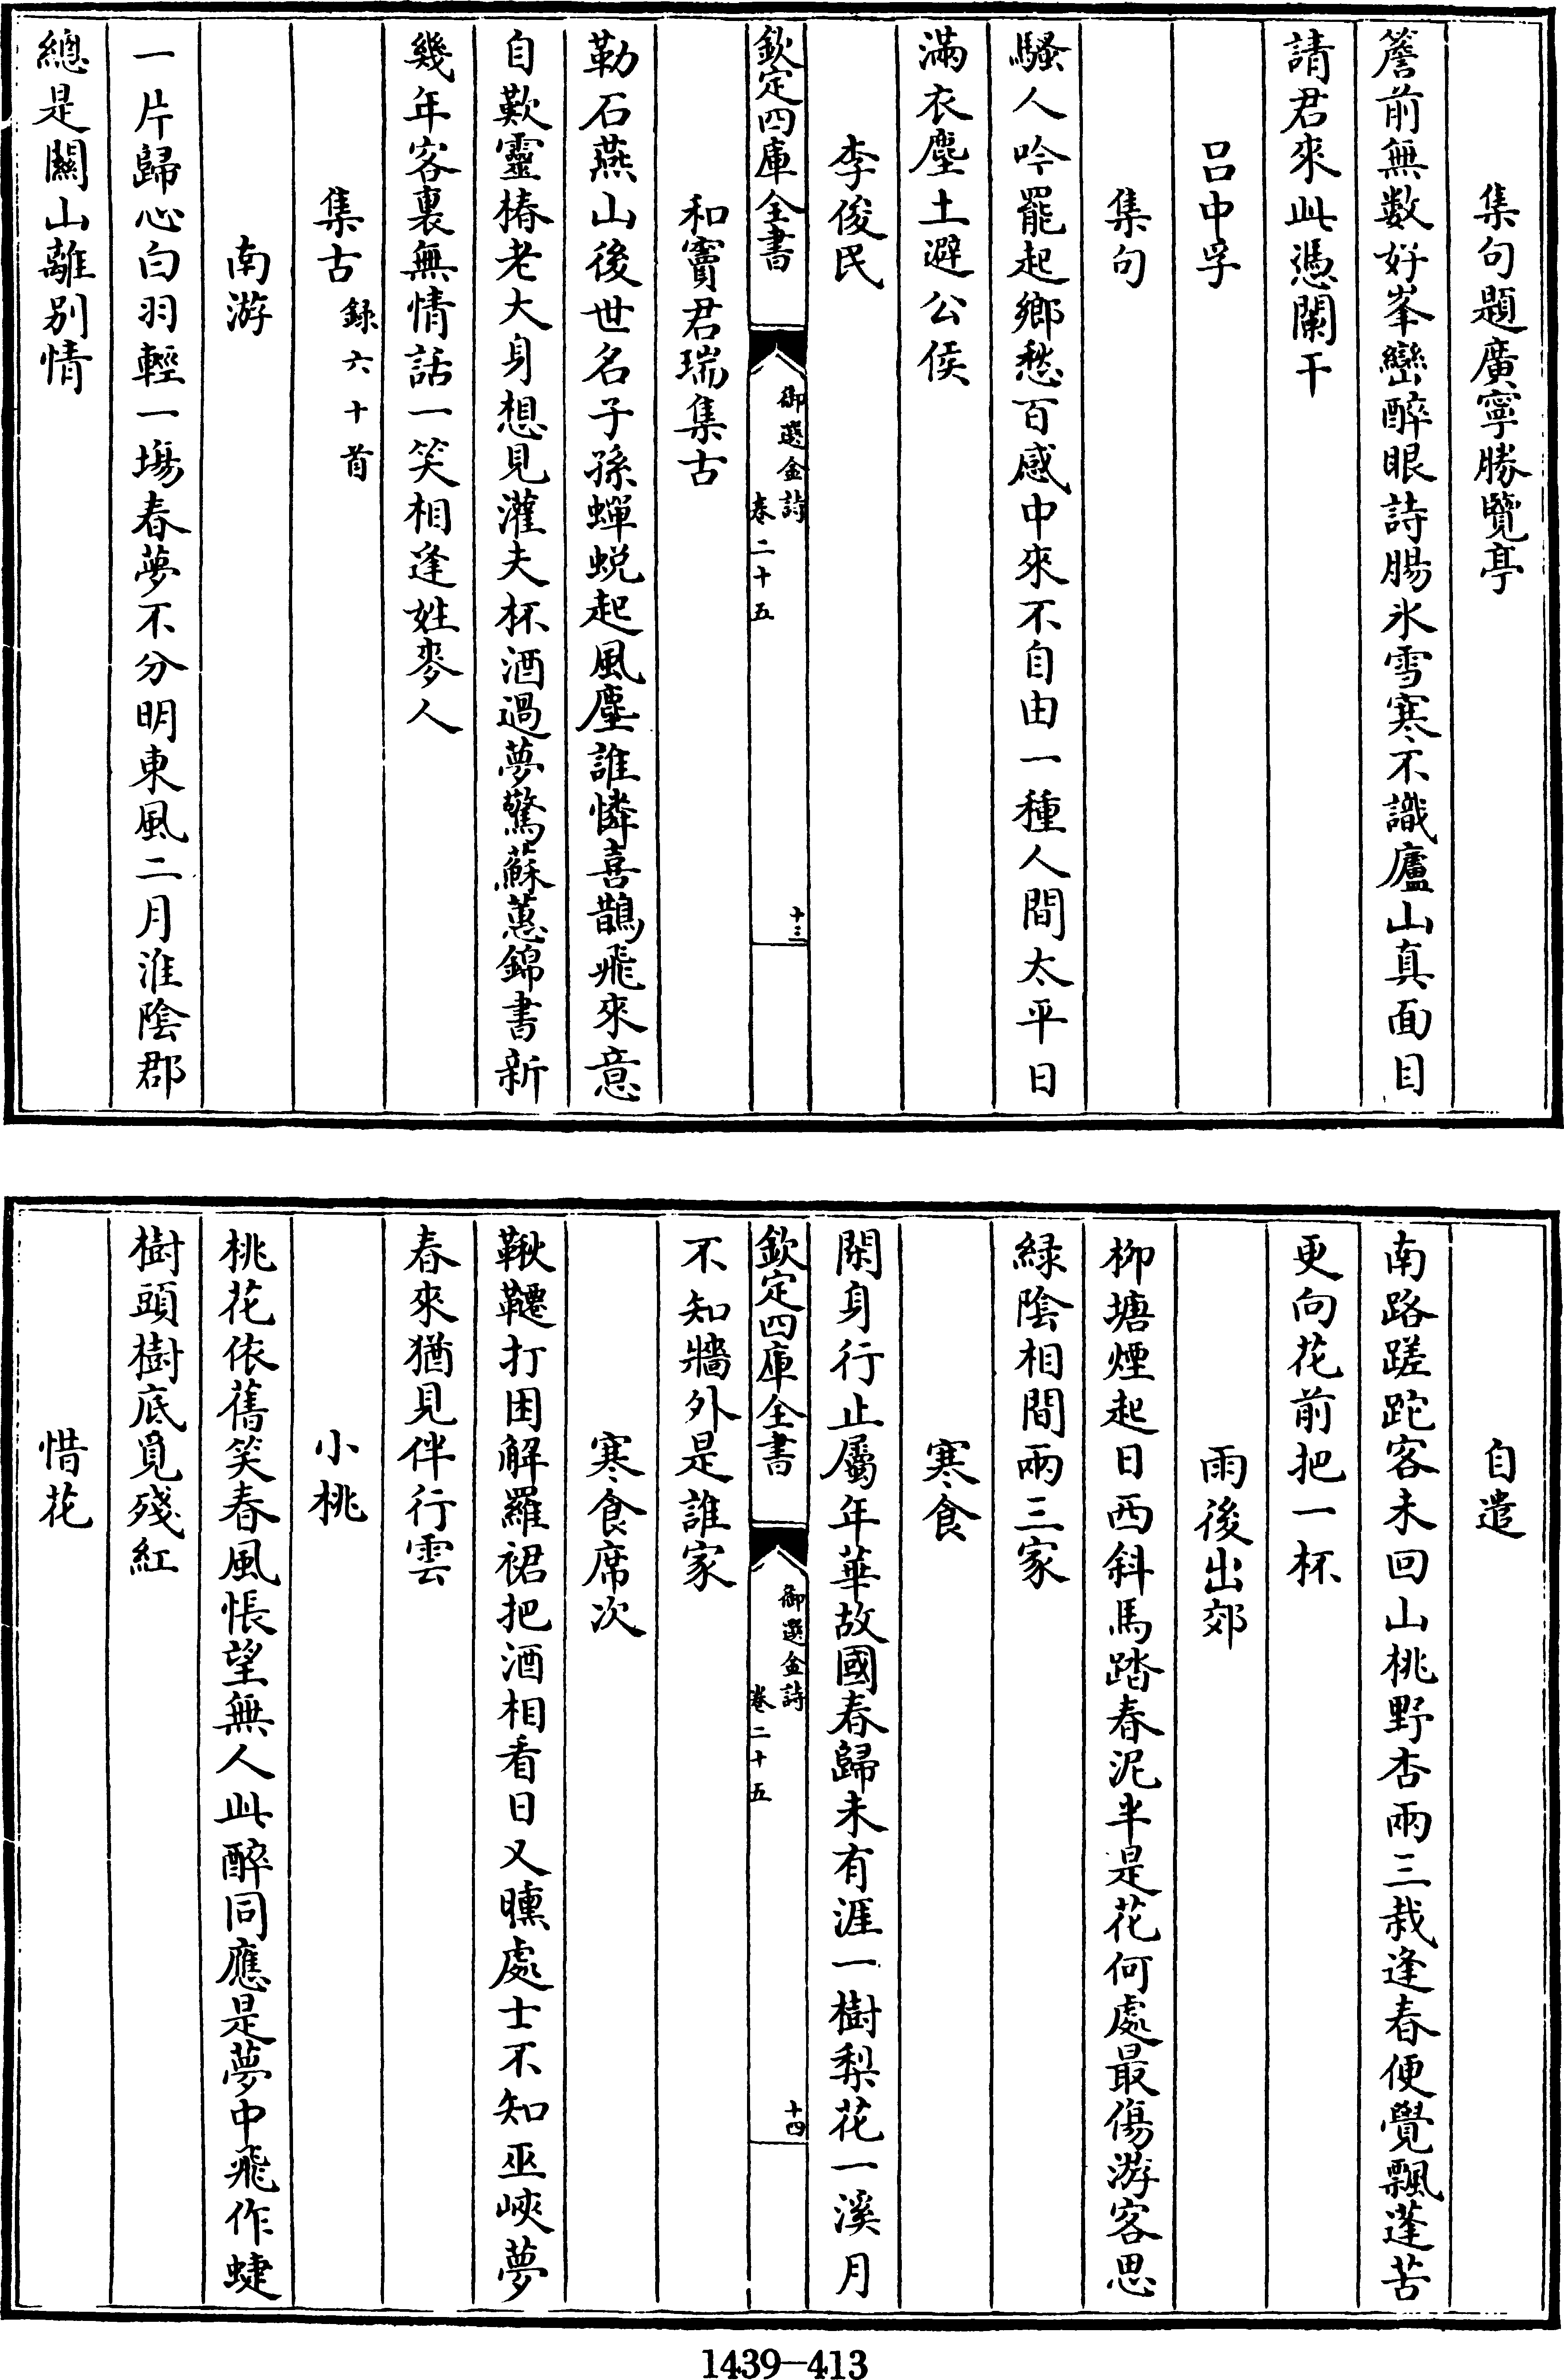 集句題廣寧勝覽亭
簷前無數好峯巒醉眼詩腸氷雪寒不識廬山真面目
請君來此憑闌干
呂中孚
集句
騷人吟罷起鄉愁百感中來不自由一種人間太平日
滿衣塵土避公侯
李俊民
欽定四庫全書
御選金詩
卷二十五
十三
和竇君瑞集古
勒石燕山後世名子孫蟬蛻起風塵誰憐喜鵲飛來意
自歎靈椿老大身想見灌夫杯酒過夢驚蘇蕙錦書新
幾年客裏無情話一笑相逢姓麥人
集古錄六十首
南游
一片歸心白羽輕一塲春夢不分明東風二月淮陰郡
總是關山離別情
自遣
南路蹉跎客未回山桃野杏兩三栽逢春便覺飄蓬苦
更向花前把一杯
雨後出郊
柳塘煙起日西斜馬踏春泥半是花何處最傷游客思
緑陰相間兩三家
寒食
閑身行止屬年華故國春歸未有涯一樹梨花一溪月
欽定四庫全書
御選金詩
卷二十五
十四
不知牆外是誰家
寒食席次
鞦韆打困解羅裙把酒相看日又曛處士不知巫峽夢
春來猶見伴行雲
小桃
桃花依舊笑春風悵望無人此醉同應是夢中飛作蜨
樹頭樹底覓殘紅
惜花
1439—413